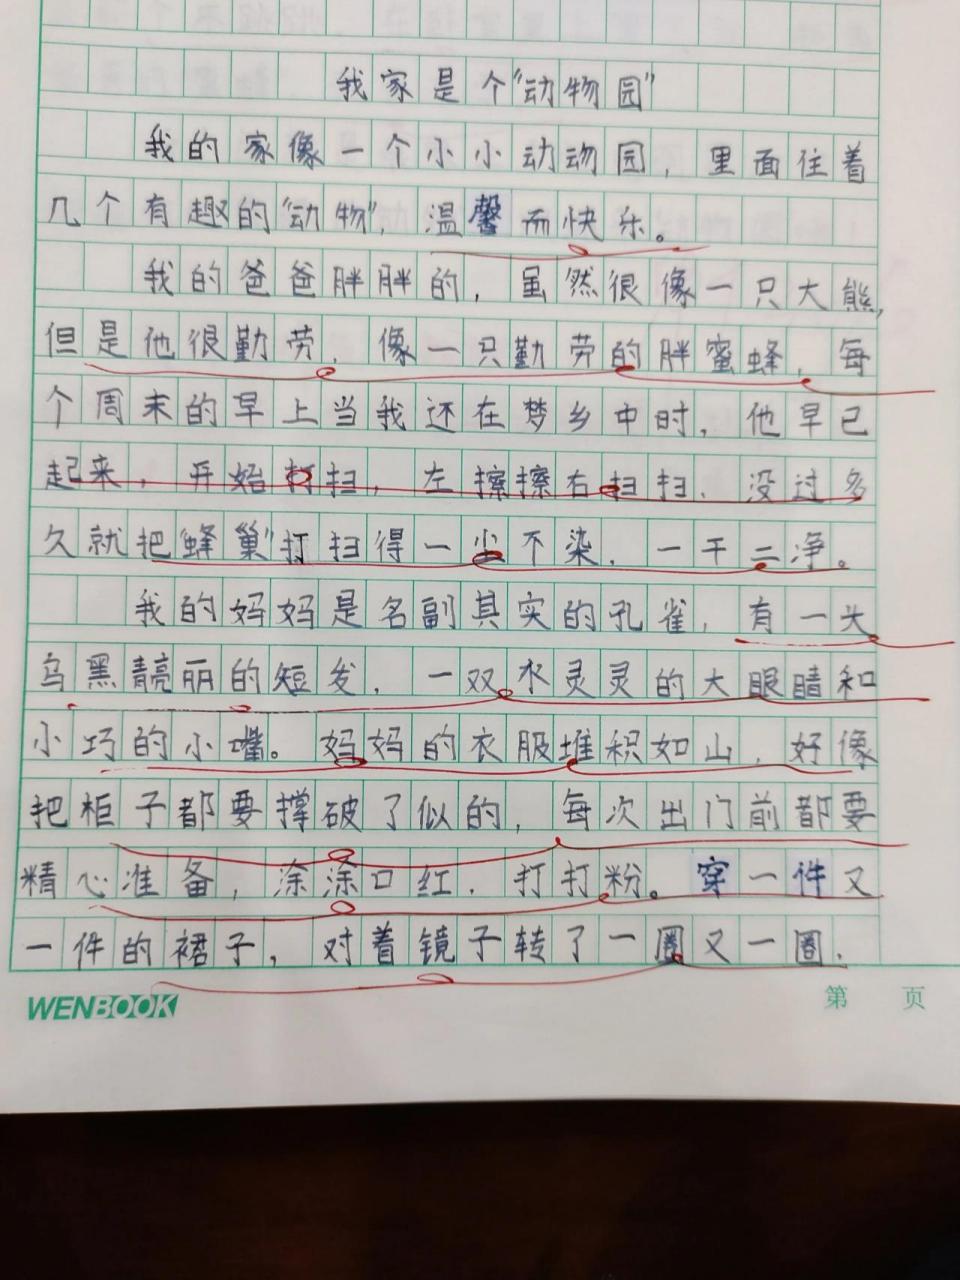 我家是个“动物园”
我的家像一个小小动动园，里面住着
几个有趣的“动物”，温馨而快乐。
我的爸爸胖胖的，虽然很像一只大熊，
但是他很勤劳，像一只勤劳的胖蜜蜂，每
个周末的早上当我还在梦乡中时，他早已
起来，开始打扫，左擦擦右扫扫，没过多
久就把“蜂巢”打扫得一尘不染，一干二净。
我的妈妈是名副其实的孔雀，有一头
乌黑靓丽的短发，一双水灵灵的大眼睛和
小巧的小嘴。妈妈的衣服堆积如山，好像
把柜子都要撑破了似的，每次出门前都要
精心准备，涂涂口红，打打粉。穿一件又
一件的裙子，对着镜子转了一圈又一圈，
WENBOOK 第 页